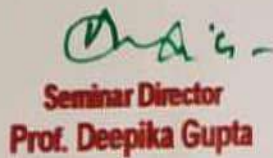 Seminar Director
Prof. Deepika Gupta